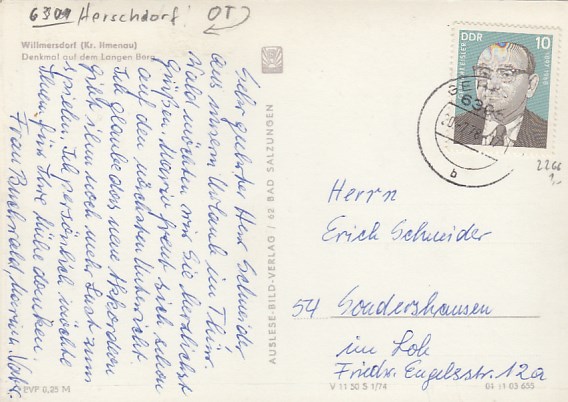 6301 Herschdorf! OT
Willmersdorf (Kr. Ilmenau)
Denkmal auf dem Langen Berg
Sehr geehrter Herr Schneider
aus unserem Urlaub im Thür.
Wald möchten wir Sie herzlichst
grüßen. Mario freut sich schon
auf den nächsten Unterricht.
Ich glaube das neue Akkordeon
gibt ihm noch mehr Lust zum
spielen. Ich persönlich möchte
Ihnen für Ihre Mühe danken.
Frau Buchwald, Mario u. Vati
AUSLESE-BILD-VERLAG / 62 BAD SALZUNGEN
DDR 10
63
b
2266
1,-
Herrn
Erich Schneider
54 Sondershausen
im Loh
Friedr. Engelsstr. 12a
EVP 0,25 M
V 11 50 S 1/74
03 655